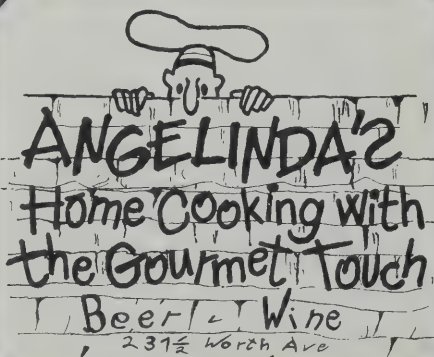 ANGELINDA'S
Home Cooking with
the Gourmet Touch
Beer & Wine
231½ Worth Ave